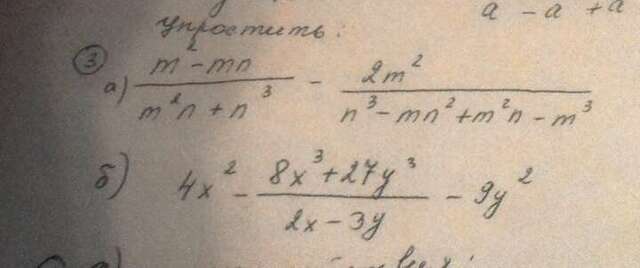 a - a + a
упростить:
③ а) (m² - mn)/(m²n + n³) - 2m²/(n³ - mn² + m²n - m³)
б) 4x² - (8x³ + 27y³)/(2x - 3y) - 9y²
а)